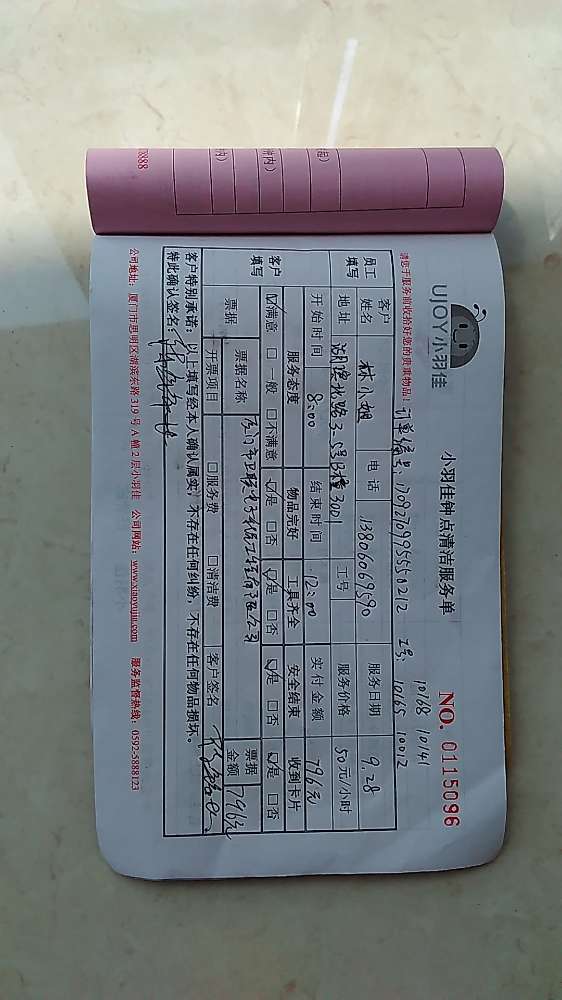 3888
内）
钟内）
起）
UJOY小羽佳
小羽佳钟点清洁服务单
NO. 0115096
请您于服务前收拾好您的贵重物品！
订单编号：
工号：10168 10141
10165 10012
员工填写
客户姓名 林小姐 电话 13806069590 服务日期 9.28
地址 湖滨北路 3001 工号 服务价格 50元/小时
开始时间 8:00 结束时间 12:00 实付金额 796元
客户填写
服务态度 物品完好 工具齐全 安全结束 收到卡片
☑满意 □一般 □不满意 ☑是 □否 ☑是 □否 ☑是 □否 ☑是 □否
票据
票据名称 票据金额 796元
开票项目 □服务费 □清洁费 客户签名
客户特别承诺：以上填写经本人确认属实，不存在任何纠纷，不存在任何物品损坏。
特此确认签名：
公司地址：厦门市思明区湖滨东路319号A幢2层小羽佳 公司网站：www.xiaoyujia.com 服务监督热线：0592-5888123